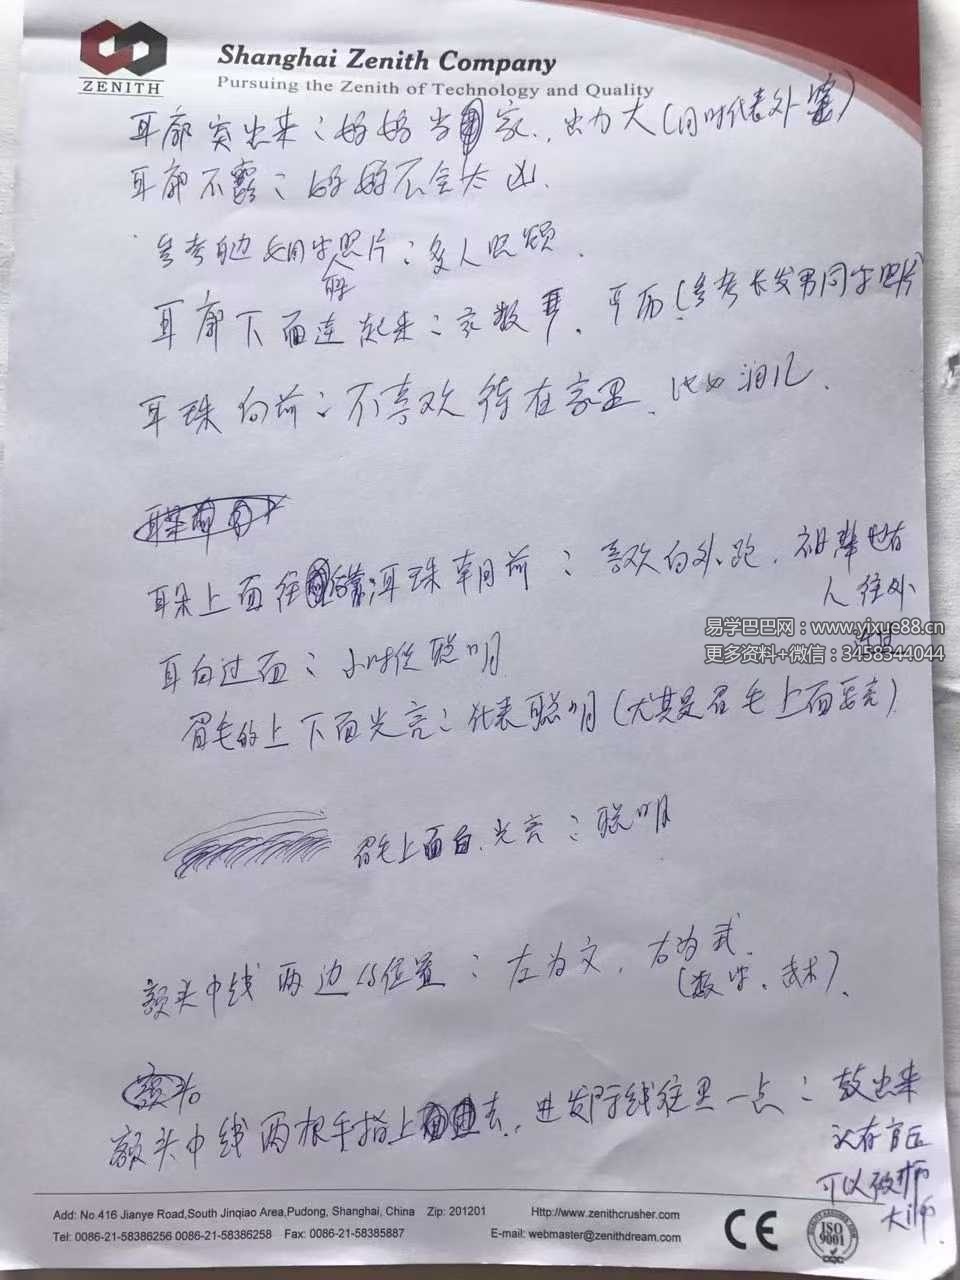 ZENITH
Shanghai Zenith Company
Pursuing the Zenith of Technology and Quality
耳廓突出来：妈妈当家，出力大（同时代表外露）
耳廓不露：妈妈不会太凶.
参考 照片：多人照顾.
耳廓下面连起来：家教严，平历（参考长发男同学照片
耳珠向前：不喜欢待在家里、比如润儿.
耳朵上面往 耳珠朝前：喜欢向外跑，祖辈也有
人往外
易学巴巴网：www.yixue88.cn
更多资料+微信：3458344044
耳白过面：小时候聪明
眉毛的上下面光亮：代表聪明（尤其是眉毛上面 亮）
眉毛上面白.光亮：聪明
额头中线两边的位置：左为文，右为武.
（数学、武术）.
额头
额头中线两根手指上 去，进发际线往里一点：鼓出来
认存
可以
大师.
Add: No.416 Jianye Road,South Jinqiao Area,Pudong, Shanghai, China Zip: 201201 Http://www.zenithcrusher.com
Tel: 0086-21-58386256 0086-21-58386258 Fax: 0086-21-58385887 E-mail: webmaster@zenithdream.com
CE
ISO
9001
CQC